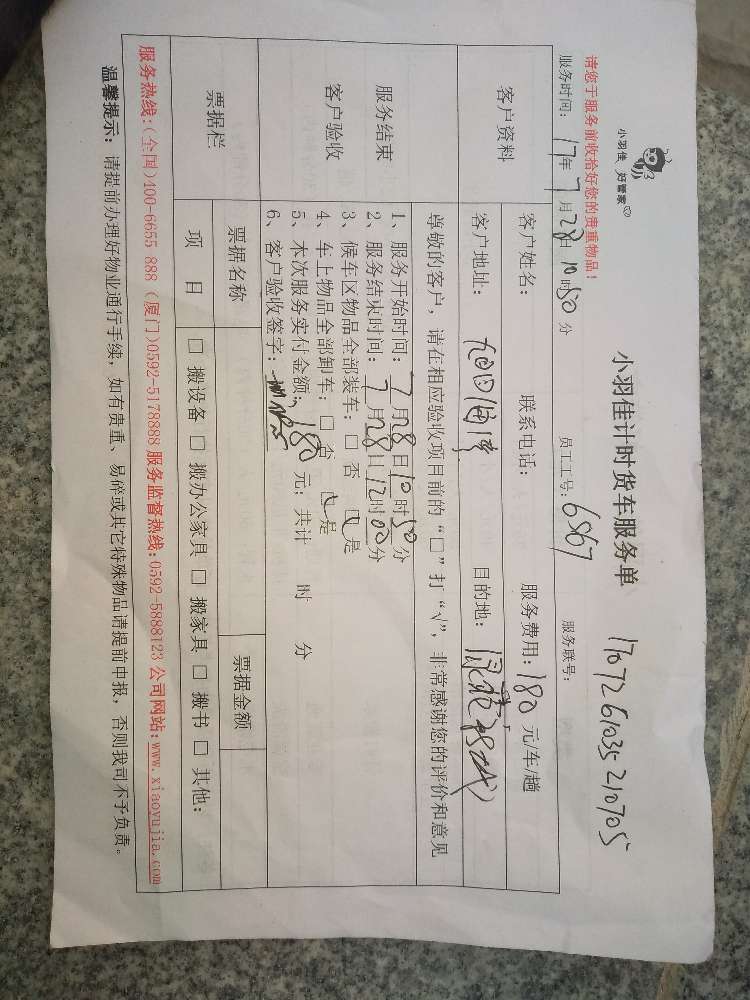 小羽佳 好管家
小羽佳计时货车服务单
1707261035210705
请您于服务前收拾好您的贵重物品！
服务时间： 17年 7月 28日 10时50分 员工工号：6867 服务联号：
客户资料
客户姓名： 联系电话： 服务费用：180 元/车/趟
客户地址： 目的地：
尊敬的客户，请在相应验收项目前的“□”打“√”，非常感谢您的评价和意见
服务结束
客户验收
1、服务开始时间：7月28日10时50分
2、服务结束时间：7月28日12时00分
3、候车区物品全部装车：□ 否 ☑ 是
4、车上物品全部卸车：□ 否 ☑ 是
5、本次服务实付金额：180 元；共计 时 分
6、客户验收签字：
票据栏
票据名称 票据金额
项 目 □ 搬设备 □ 搬办公家具 □ 搬家具 □ 搬书 □ 其他：
服务热线：(全国)400-6655 888 (厦门)0592-5178888 服务监督热线：0592-5888123 公司网站：www.xiaoyujia.com
温馨提示：请提前办理好物业通行手续，如有贵重、易碎或其它特殊物品请提前申报，否则我司不予负责。